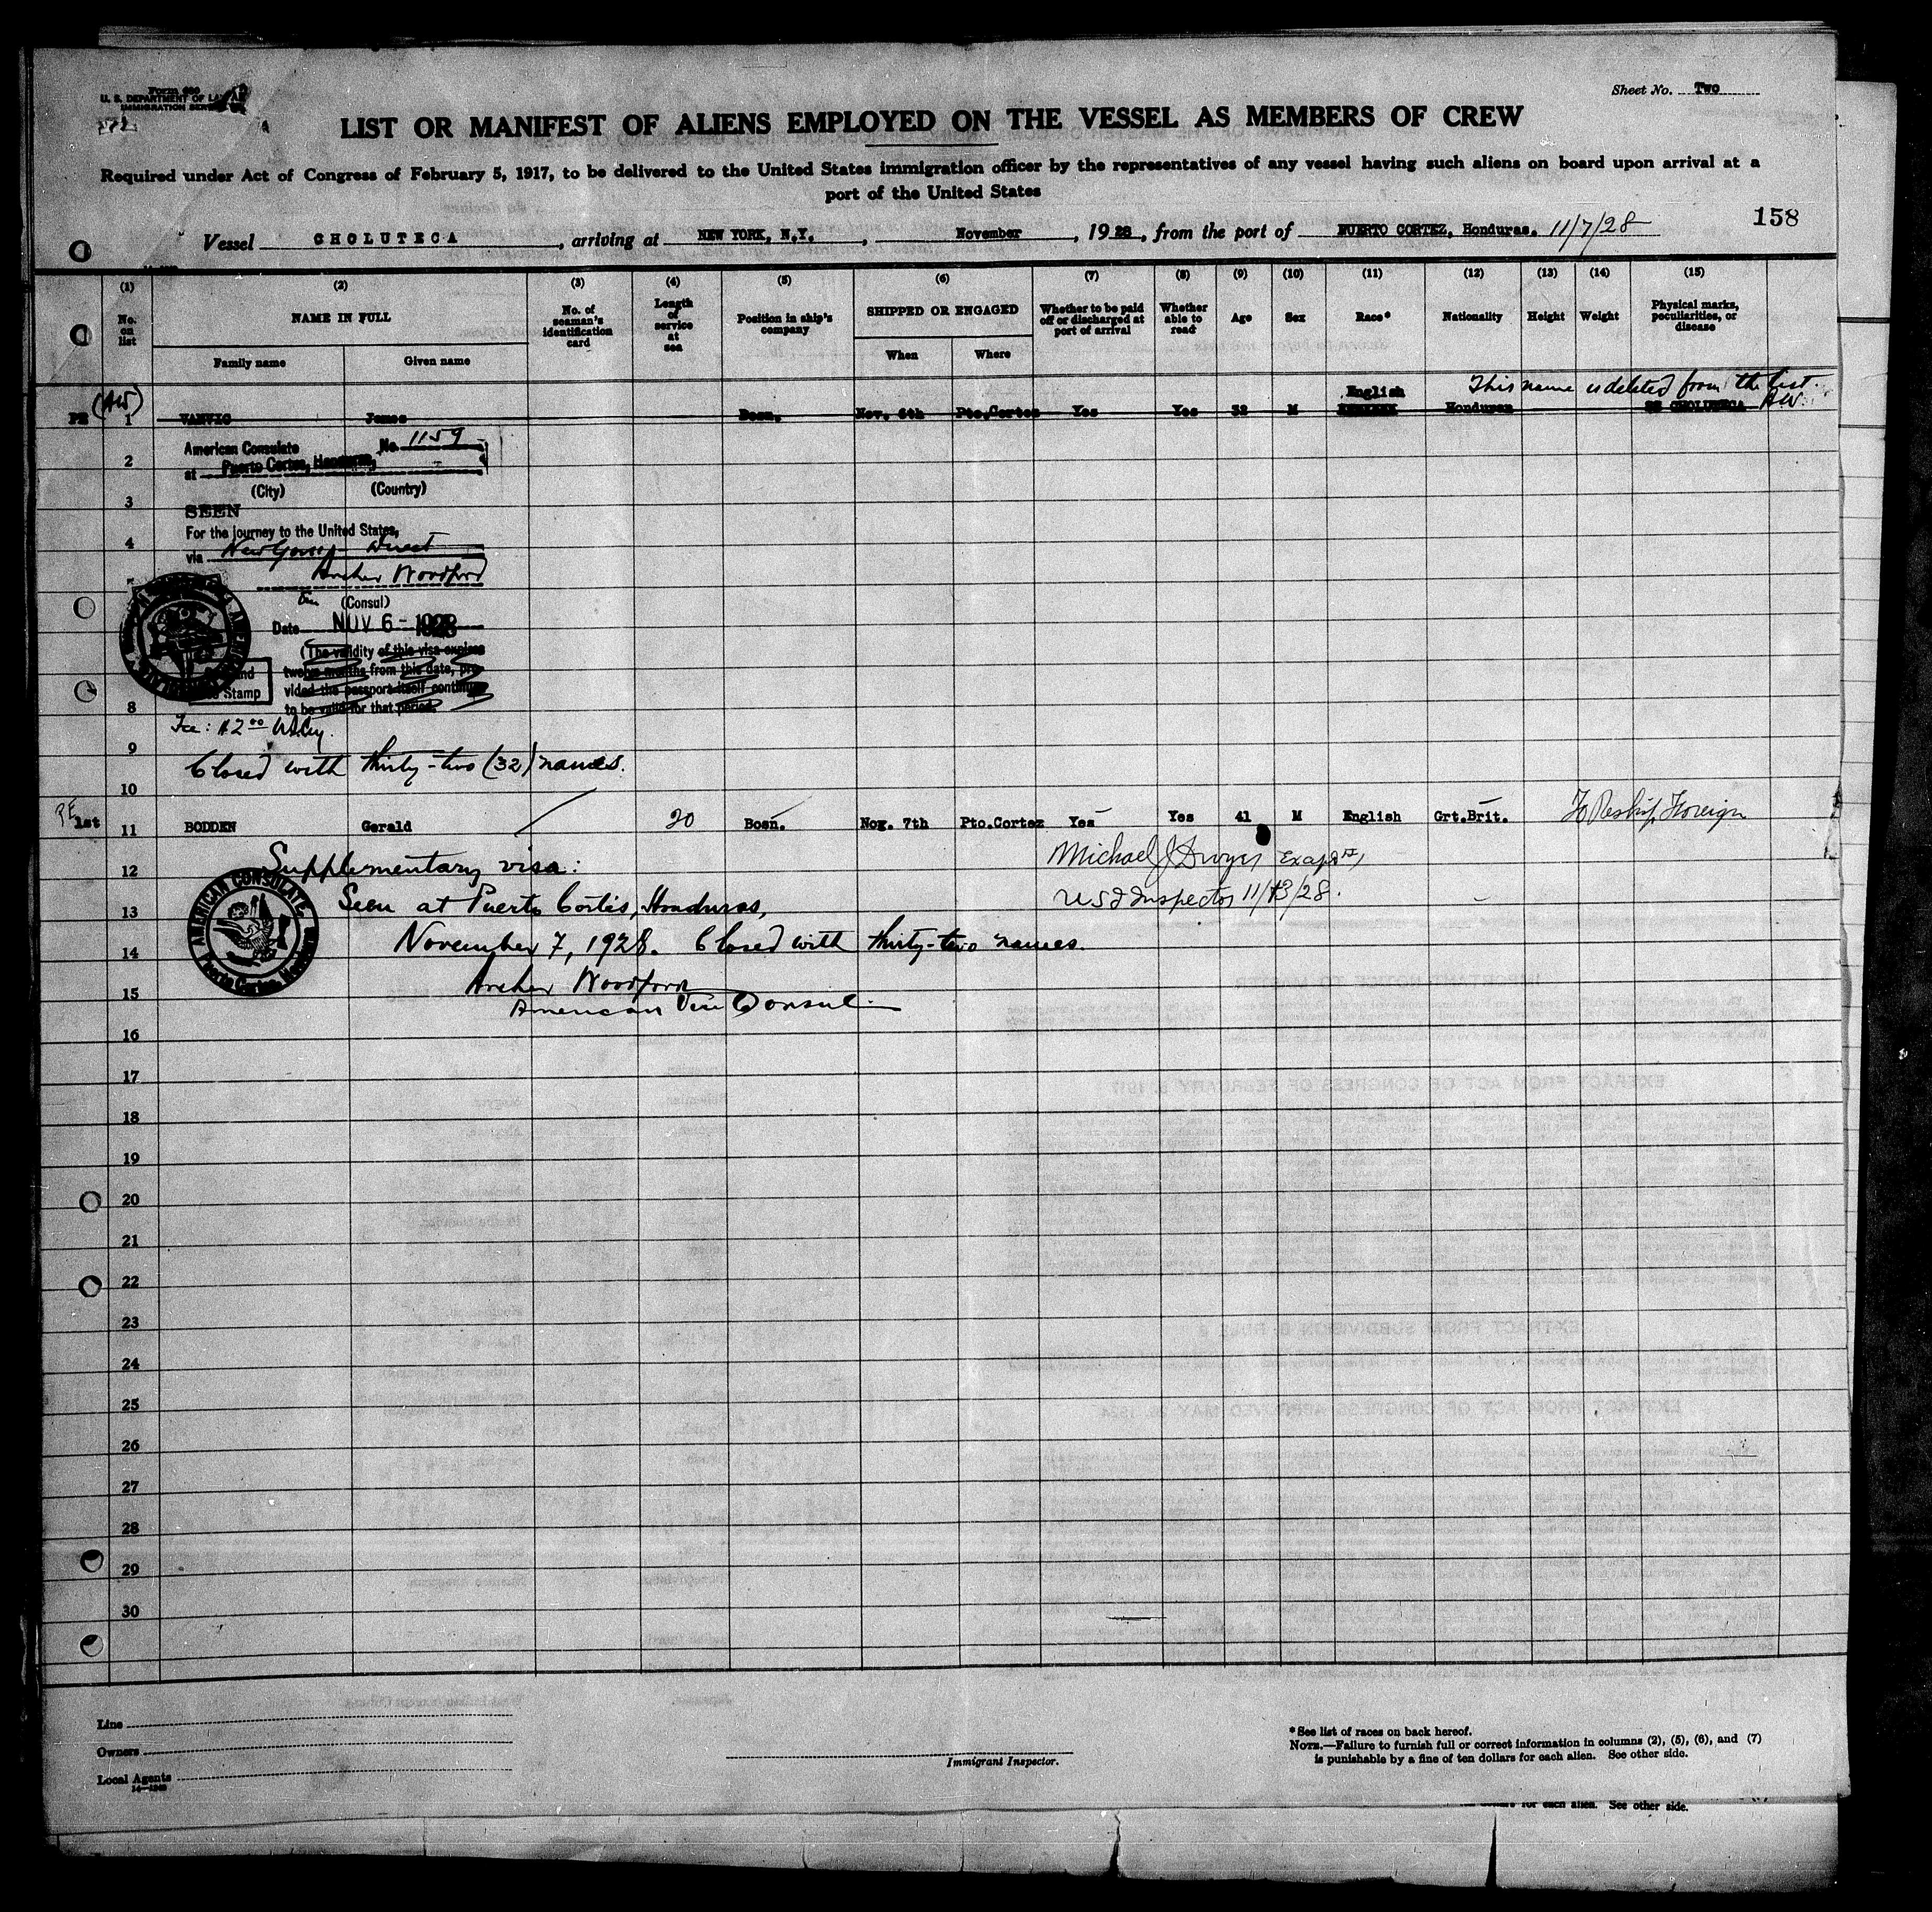 Form 680
U. S. DEPARTMENT OF LABOR
IMMIGRATION SERVICE
Sheet No. Two
LIST OR MANIFEST OF ALIENS EMPLOYED ON THE VESSEL AS MEMBERS OF CREW
Required under Act of Congress of February 5, 1917, to be delivered to the United States immigration officer by the representatives of any vessel having such aliens on board upon arrival at a
port of the United States
158
Vessel CHOLUTECA, arriving at NEW YORK, N.Y., November, 1928, from the port of PUERTO CORTEZ, Honduras. 11/7/28
(1) (2) (3) (4) (5) (6) (7) (8) (9) (10) (11) (12) (13) (14) (15)
No. on list NAME IN FULL No. of seaman's identification card Length of service at sea Position in ship's company SHIPPED OR ENGAGED Whether to be paid off or discharged at port of arrival Whether able to read Age Sex Race* Nationality Height Weight Physical marks, peculiarities, or disease
Family name Given name When Where
(AW) English This name is deleted from the list. AW
1 VANVIC James Bosn. Nov. 6th Pto.Cortez Yes Yes 32 M Honduran SS CHOLUTECA
American Consulate No. 1159
2
at Puerto Cortes, Honduras,
(City) (Country)
3
SEEN
For the journey to the United States,
4
via New York direct
Archer Woodford
(Consul)
Date NOV 6 - 1928
(The validity of this visa expires
twelve months from this date, pro-
vided the passport itself continues
to be valid for that period.
Stamp
8
Fee: $2.00 US Cy.
9
Closed with thirty-two (32) names.
10
1st 11 BODDEN Gerald 20 Bosn. Nov. 7th Pto.Cortez Yes Yes 41 M English Grt.Brit. To Reship Foreign
Supplementary visa: Michael J Dwyer
12
AMERICAN CONSULATE
Puerto Cortes, Honduras
Seen at Puerto Cortés, Honduras, US Inspector 11/13/28.
13
November 7, 1928. Closed with thirty-two names.
14
Archer Woodford
15
American Vice Consul
16
17
18
19
20
21
22
23
24
25
26
27
28
29
30
Line
Owners
Local Agents
Immigrant Inspector.
*See list of races on back hereof.
NOTE.—Failure to furnish full or correct information in columns (2), (5), (6), and (7)
is punishable by a fine of ten dollars for each alien. See other side.
for each alien. See other side.